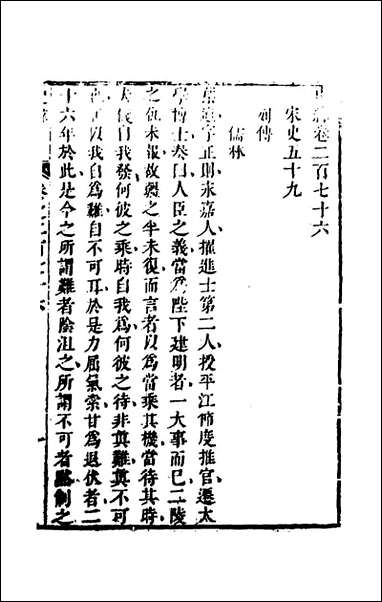 史緯卷二百七十六
宋史五十九
列傳
儒林
葉適字正則永嘉人擢進士第二人授平江節度推官遷太
學博士奏曰人臣之義當爲陛下建明者一大事而已二陵
之仇未報故疆之半未復而言者以爲當乘其機當待其時
然機自我發何彼之乘時自我爲何彼之待非眞難眞不可
也正以我自爲難自不可耳於是力屈氣索甘爲退伏者二
十六年於此是今之所謂難者陰沮之所謂不可者默制之